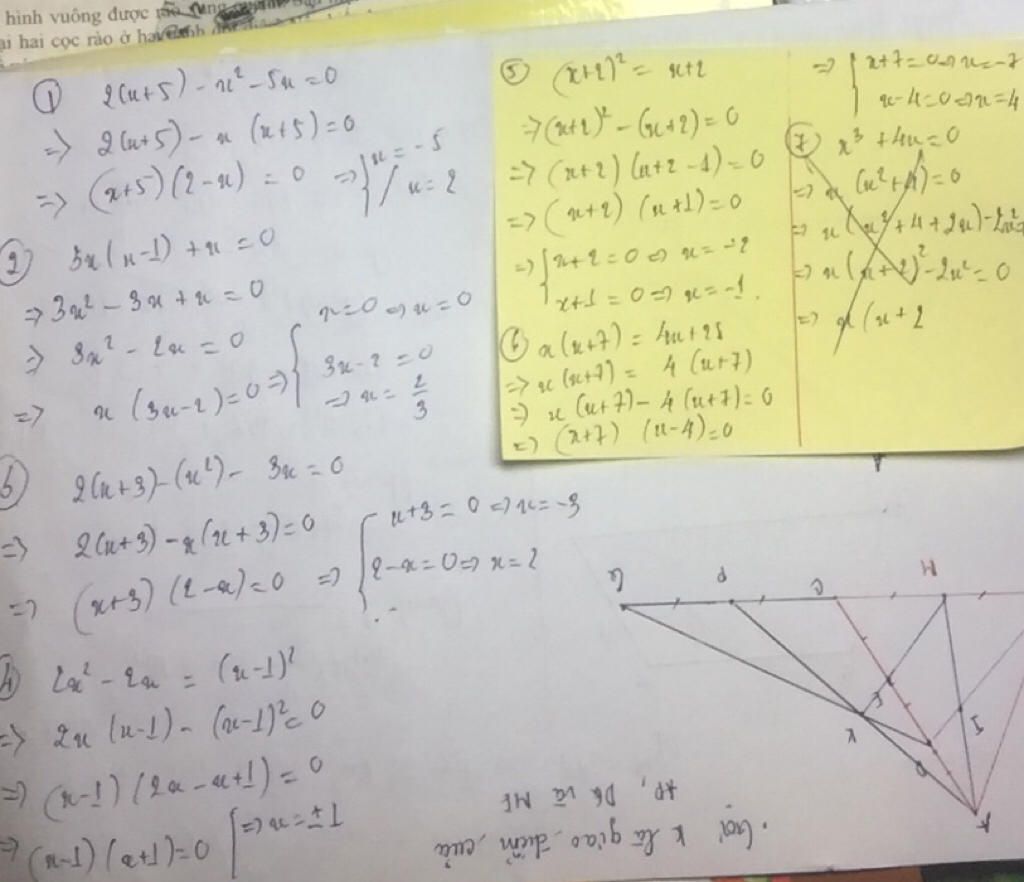 hình vuông được rào
ại hai cọc rào ở
① 2(x+5) - x² - 5x = 0
=> 2(x+5) - x (x+5) = 0
=> (x+5) (2-x) = 0 => { x = -5
x = 2
② 3x(x-1) + x = 0
=> 3x² - 3x + x = 0
=> 3x² - 2x = 0
=> x (3x-2) = 0 => { x=0 => x = 0
3x-2 = 0
=> x = 2/3
③ 2(x+3)-(x²) - 3x = 0
=> 2(x+3) - x(x+3) = 0
=> (x+3) (2-x) = 0 => { x+3 = 0 => x = -3
2-x = 0 => x = 2
④ 2x² - 2x = (x-1)²
=> 2x (x-1) - (x-1)² = 0
=> (x-1) (2x - x+1) = 0
=> (x-1) (x+1) = 0 { => x = ±1
⑤ (x+2)² = x+2
=> (x+2)² - (x+2) = 0
=> (x+2) (x+2-1) = 0
=> (x+2) (x+1) = 0
=> { x+2 = 0 => x = -2
x+1 = 0 => x = -1.
⑥ x(x+7) = 4x+28
=> x(x+7) = 4(x+7)
=> x(x+7) - 4(x+7) = 0
=> (x+7) (x-4) = 0
=> { x+7 = 0 => x = -7
x-4 = 0 => x = 4
⑦ x³ + 4x = 0
=> x (x²+4) = 0
=> x (x²+4+2x) - 2x²
=> x (x+2)² - 2x² = 0
=> x (x+2
G P C M
K E I
D A
. Gọi K là giao điểm của
AP, DG và ME